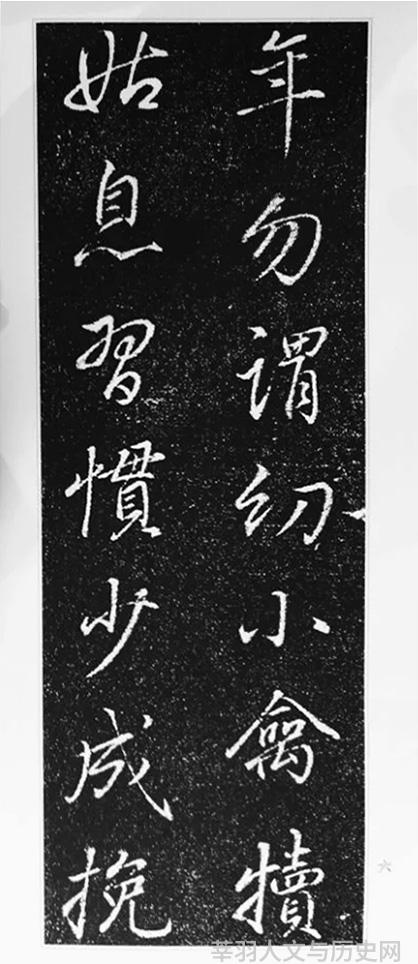 年勿謂幼小禽犢
姑息習慣少成挽
六
莘羽人文与历史网